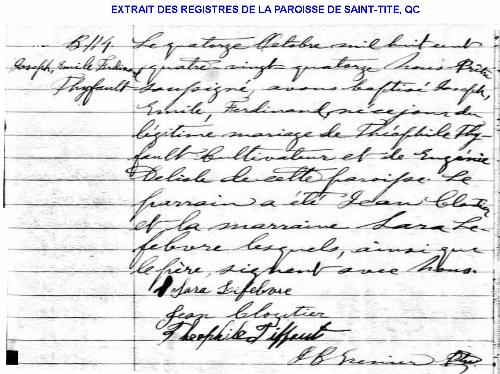 EXTRAIT DES REGISTRES DE LA PAROISSE DE SAINT-TITE, QC
B114
Joseph, Emile Ferdinand
Thyfault
Le quatorze Octobre mil huit cent
quatre vingt quatorze nous Prêtre
soussigné, avons baptisé Joseph,
Emile, Ferdinand, né ce jour du
légitime mariage de Théophile Thy-
fault Cultivateur et de Eugénie
Delisle de cette paroisse. Le
parrain a été Jean Cloutier
et la marraine Sara Le-
febvre lesquels, ainsi que
le père, signent avec nous.
Sara Lefebvre
Jean Cloutier
Theophile Tiffault
J B Grenier Ptre